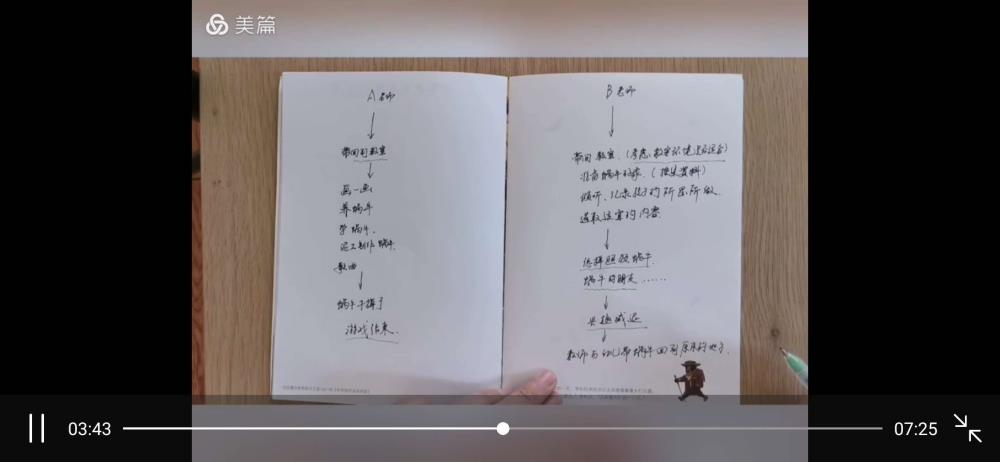 美篇
A 老师
带回到教室
画一画
养蜗牛
学蜗牛、
泥工制作蜗牛
歌曲
蜗牛干掉了
游戏结束、
B 老师
带回教室、(考虑教室环境是否适合)
沿着蜗牛、(搜集资料)
倾听、记录孩子的所思所做
选取适宜的内容
选择照顾蜗牛
蜗牛的朋友……
兴趣减退
教师与幼儿带蜗牛回到原来的地方、
03:43
07:25